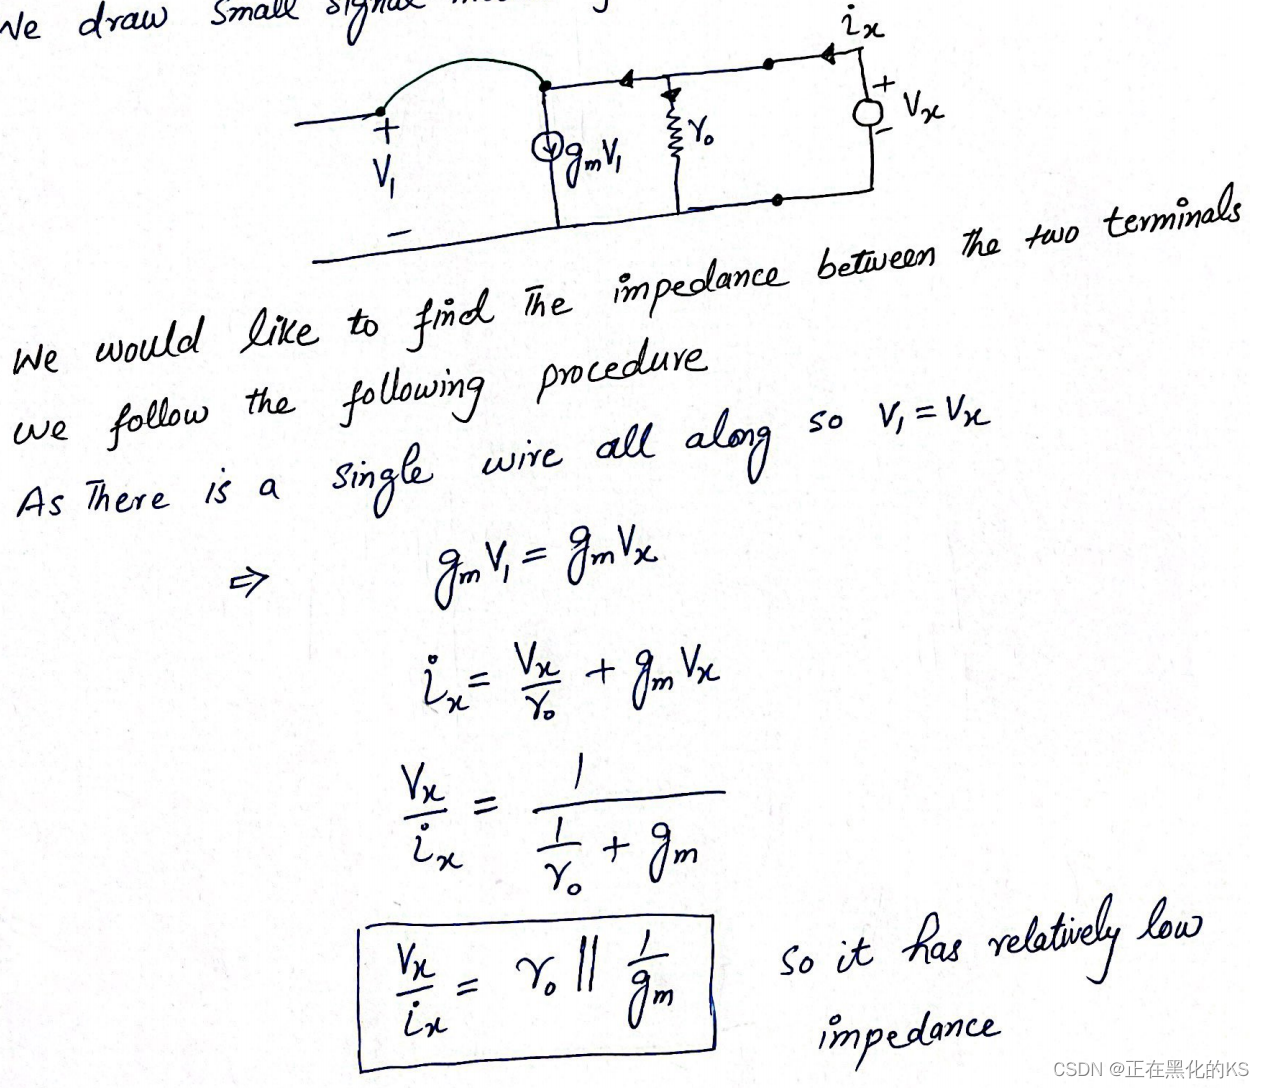 We draw small signal
i_x
+
V_x
-
+
V_1
-
g_m V_1
r_o
We would like to find The impedance between the two terminals
we follow the following procedure
As There is a single wire all along so V_1 = V_x
⇒ g_m V_1 = g_m V_x
i_x = V_x/r_o + g_m V_x
V_x/i_x = 1/(1/r_o + g_m)
V_x/i_x = r_o || 1/g_m
so it has relatively low
impedance
CSDN @正在黑化的KS